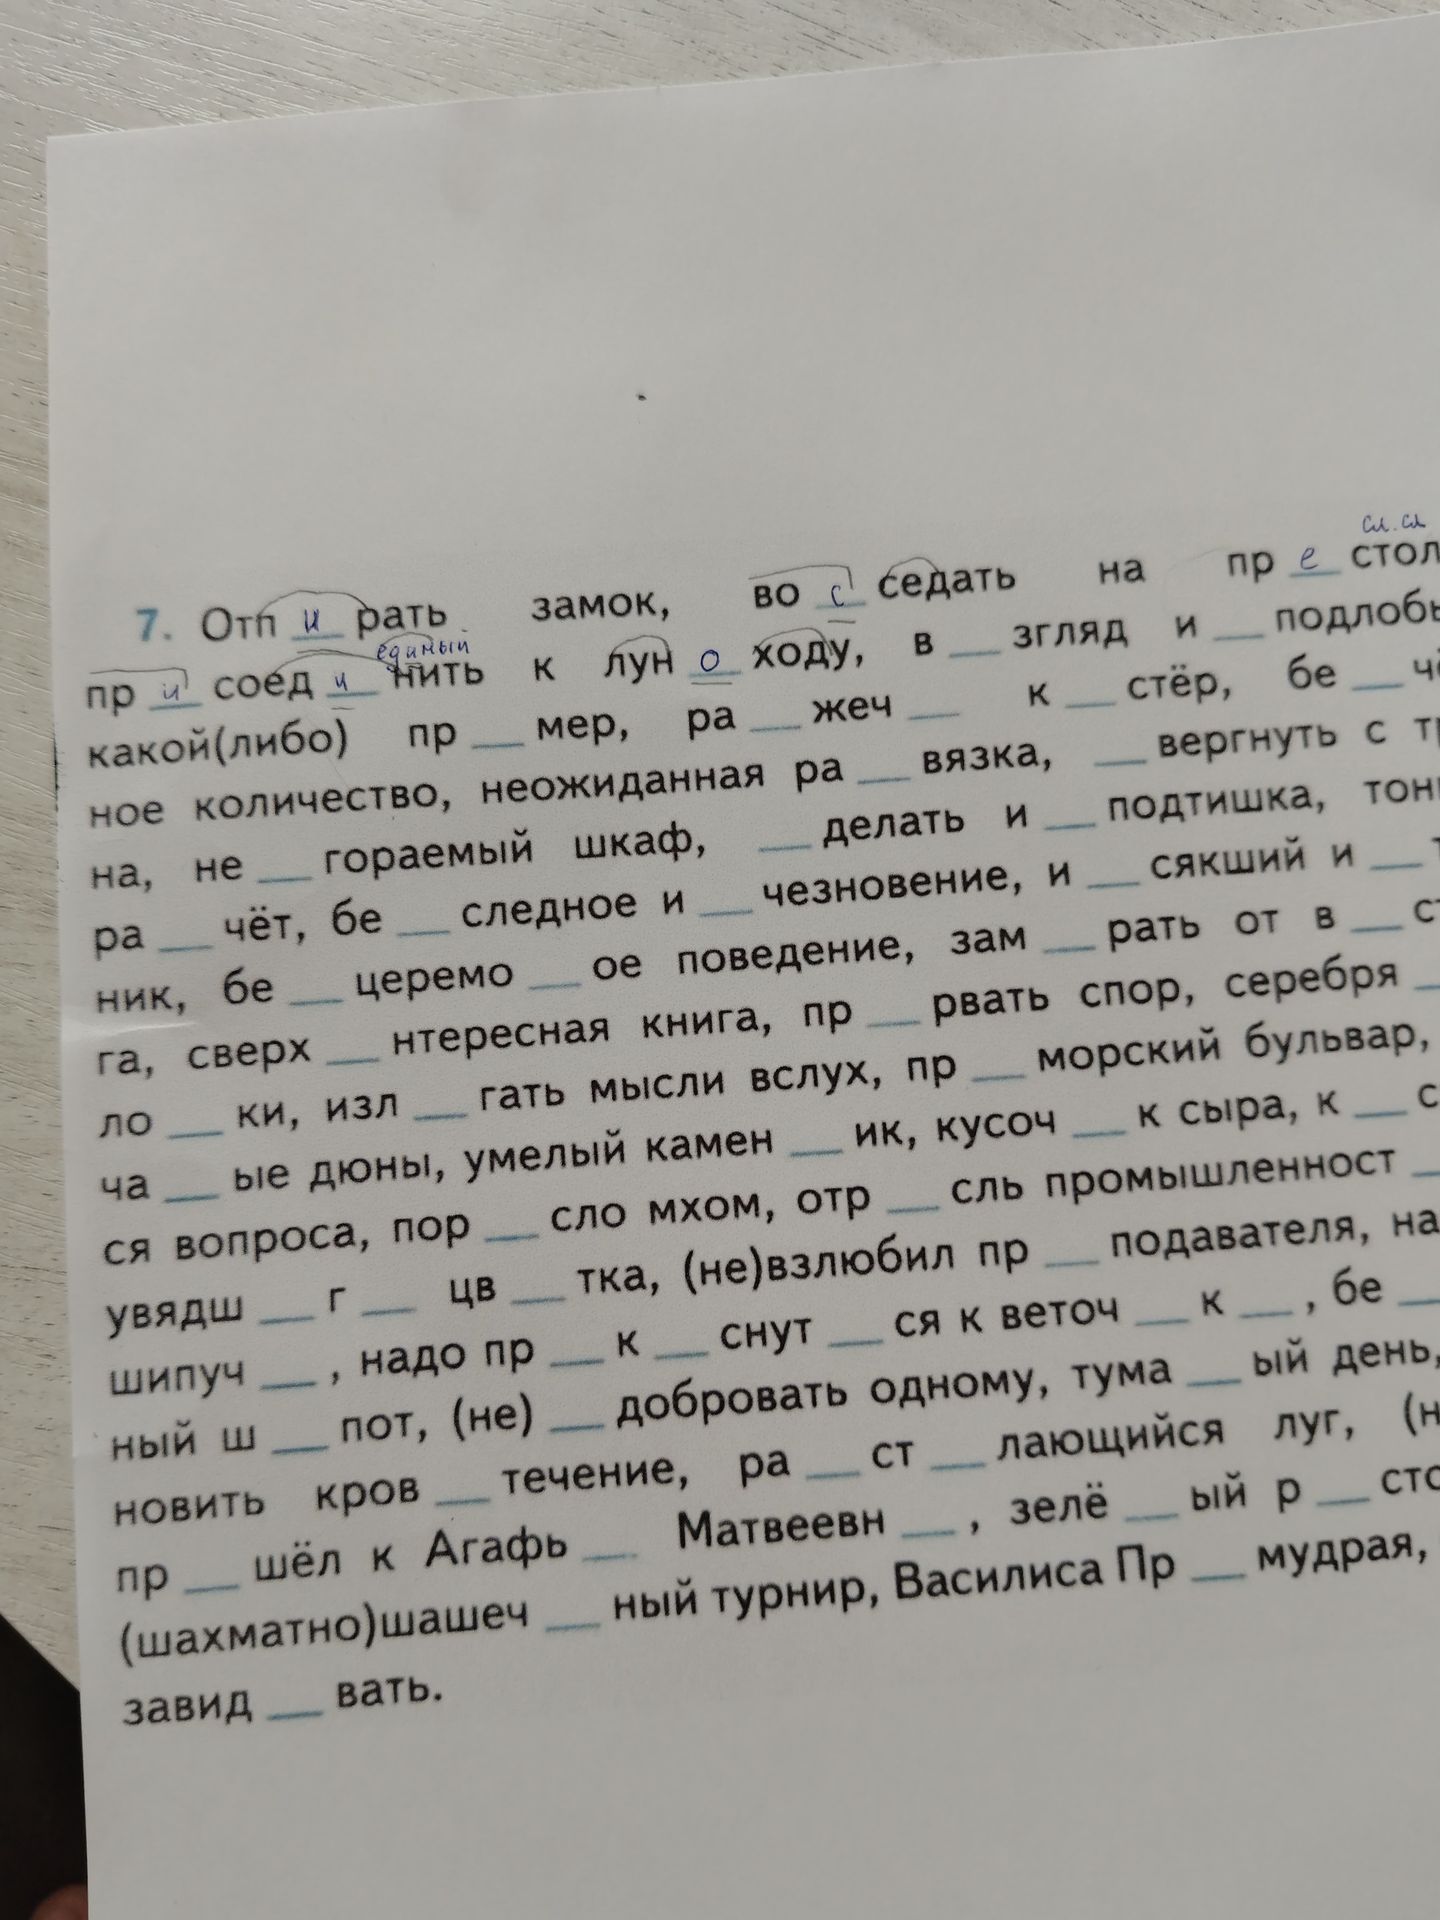 сл. сл
7. Отп и рать замок, во с седать на пр е стол
единый
пр и соед и нить к лун о ходу, в __ згляд и __ подлобь
какой(либо) пр __ мер, ра __ жеч __ к __ стёр, бе __ чё
ное количество, неожиданная ра __ вязка, __ вергнуть с тр
на, не __ гораемый шкаф, __ делать и __ подтишка, тон
ра __ чёт, бе __ следное и __ чезновение, и __ сякший и __
ник, бе __ церемо __ ое поведение, зам __ рать от в __ ст
га, сверх __ нтересная книга, пр __ рвать спор, серебря __
ло __ ки, изл __ гать мысли вслух, пр __ морский бульвар,
ча __ ые дюны, умелый камен __ ик, кусоч __ к сыра, к __ с
ся вопроса, пор __ сло мхом, отр __ сль промышленност __
увядш __ г __ цв __ тка, (не)взлюбил пр __ подавателя, на
шипуч __ , надо пр __ к __ снут __ ся к веточ __ к __ , бе __
ный ш __ пот, (не) __ добровать одному, тума __ ый день,
новить кров __ течение, ра __ ст __ лающийся луг, (н
пр __ шёл к Агафь __ Матвеевн __ , зелё __ ый р __ сто
(шахматно)шашеч __ ный турнир, Василиса Пр __ мудрая,
завид __ вать.